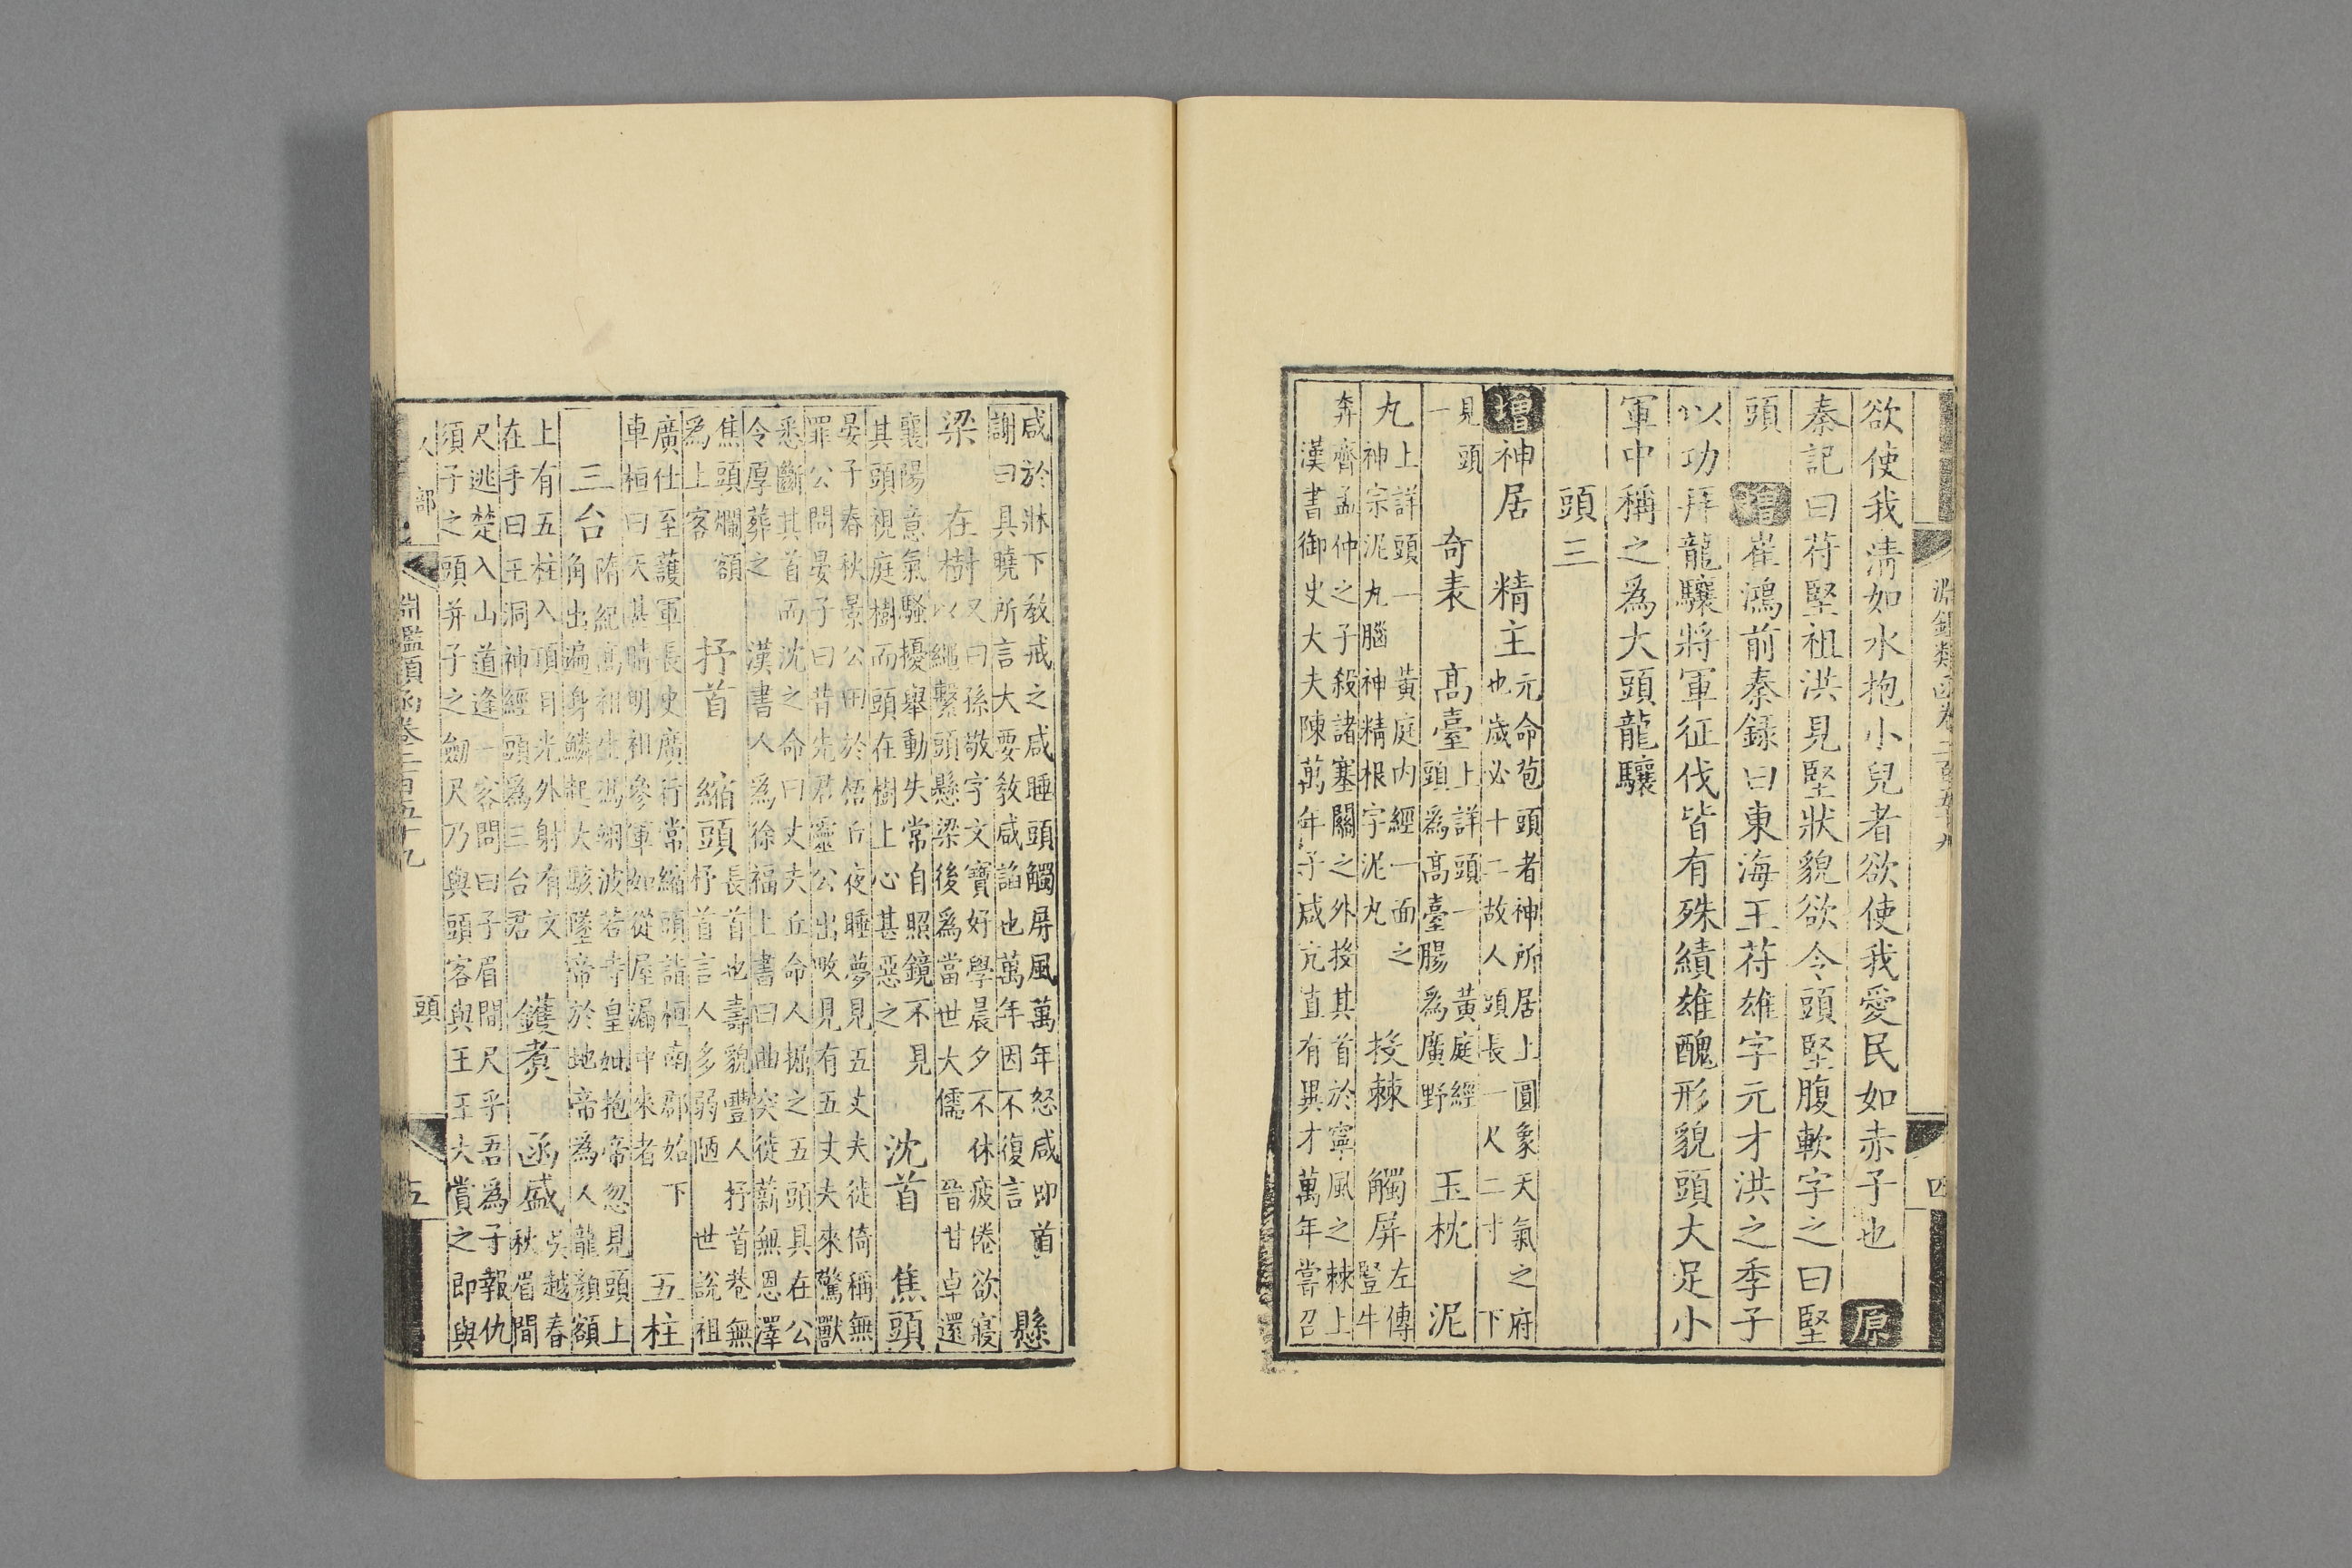 淵鑑類函卷二百五十九 四
欲使我清如水抱小兒者欲使我愛民如赤子也 原
秦記曰苻堅祖洪見堅狀貌欲令頭堅腹軟字之曰堅
頭 增 崔鴻前秦錄曰東海王苻雄字元才洪之季子
以功拜龍驤將軍征伐皆有殊績雄醜形貌頭大足小
軍中稱之爲大頭龍驤
頭三
增 神居 精主 元命苞頭者神所居上圓象天氣之府
也歲必十二故人頭長一尺二寸 下
見頭
一 奇表 高臺 上詳頭一 黃庭經
頭爲高臺腸爲廣野 玉枕 泥
丸 上詳頭一 黃庭內經一面之
神宗泥丸腦神精根字泥丸 投棘 觸屏 左傳
豎牛
奔齊孟仲之子殺諸塞關之外投其首於寧風之棘上
漢書御史大夫陳萬年子咸亢直有異才萬年嘗召
咸於牀下教戒之咸睡頭觸屏風萬年怒咸卽首
謝曰具曉所言大要教咸諂也萬年因不復言 懸
梁 在樹 又曰孫敬字文寶好學晨夕不休疲倦欲寢
以繩繫頭懸梁後爲當世大儒 晉甘卓還
襄陽意氣騷擾舉動失常自照鏡不見
其頭視庭樹而頭在樹上心甚惡之 沈首 焦頭
晏子春秋景公田於梧丘夜睡夢見五丈夫徒倚稱無
罪公問晏子曰昔先君靈公出畋見有五丈夫來驚獸
悉斷其首而沈之命曰丈夫丘命人掘之五頭具在公
令厚葬之 漢書人爲徐福上書曰曲突徙薪無恩澤
焦頭爛額
爲上客 抒首 縮頭 長首也壽貌豐人抒首巷無
抒首言人多弱陋 世說祖
廣仕至護軍長史廣行常縮頭詣桓南郡始下
車桓曰天甚晴明祖參軍如從屋漏中來者 五柱
三台 隋紀高祖生馮翊波若寺皇妣抱帝忽見頭上
角出遍身鱗起大駭墜帝於地帝爲人龍顏額
上有五柱入頂目光外射有文
在手曰王 洞神經頭爲三台君 鑊煑 函盛 吳越春
秋眉間
尺逃楚入山道逢一客問曰子眉間尺乎吾爲子報仇
須子之頭并子之劍尺乃與頭客與王王大賞之卽與
人部 淵鑑類函卷二百五十九 頭 五